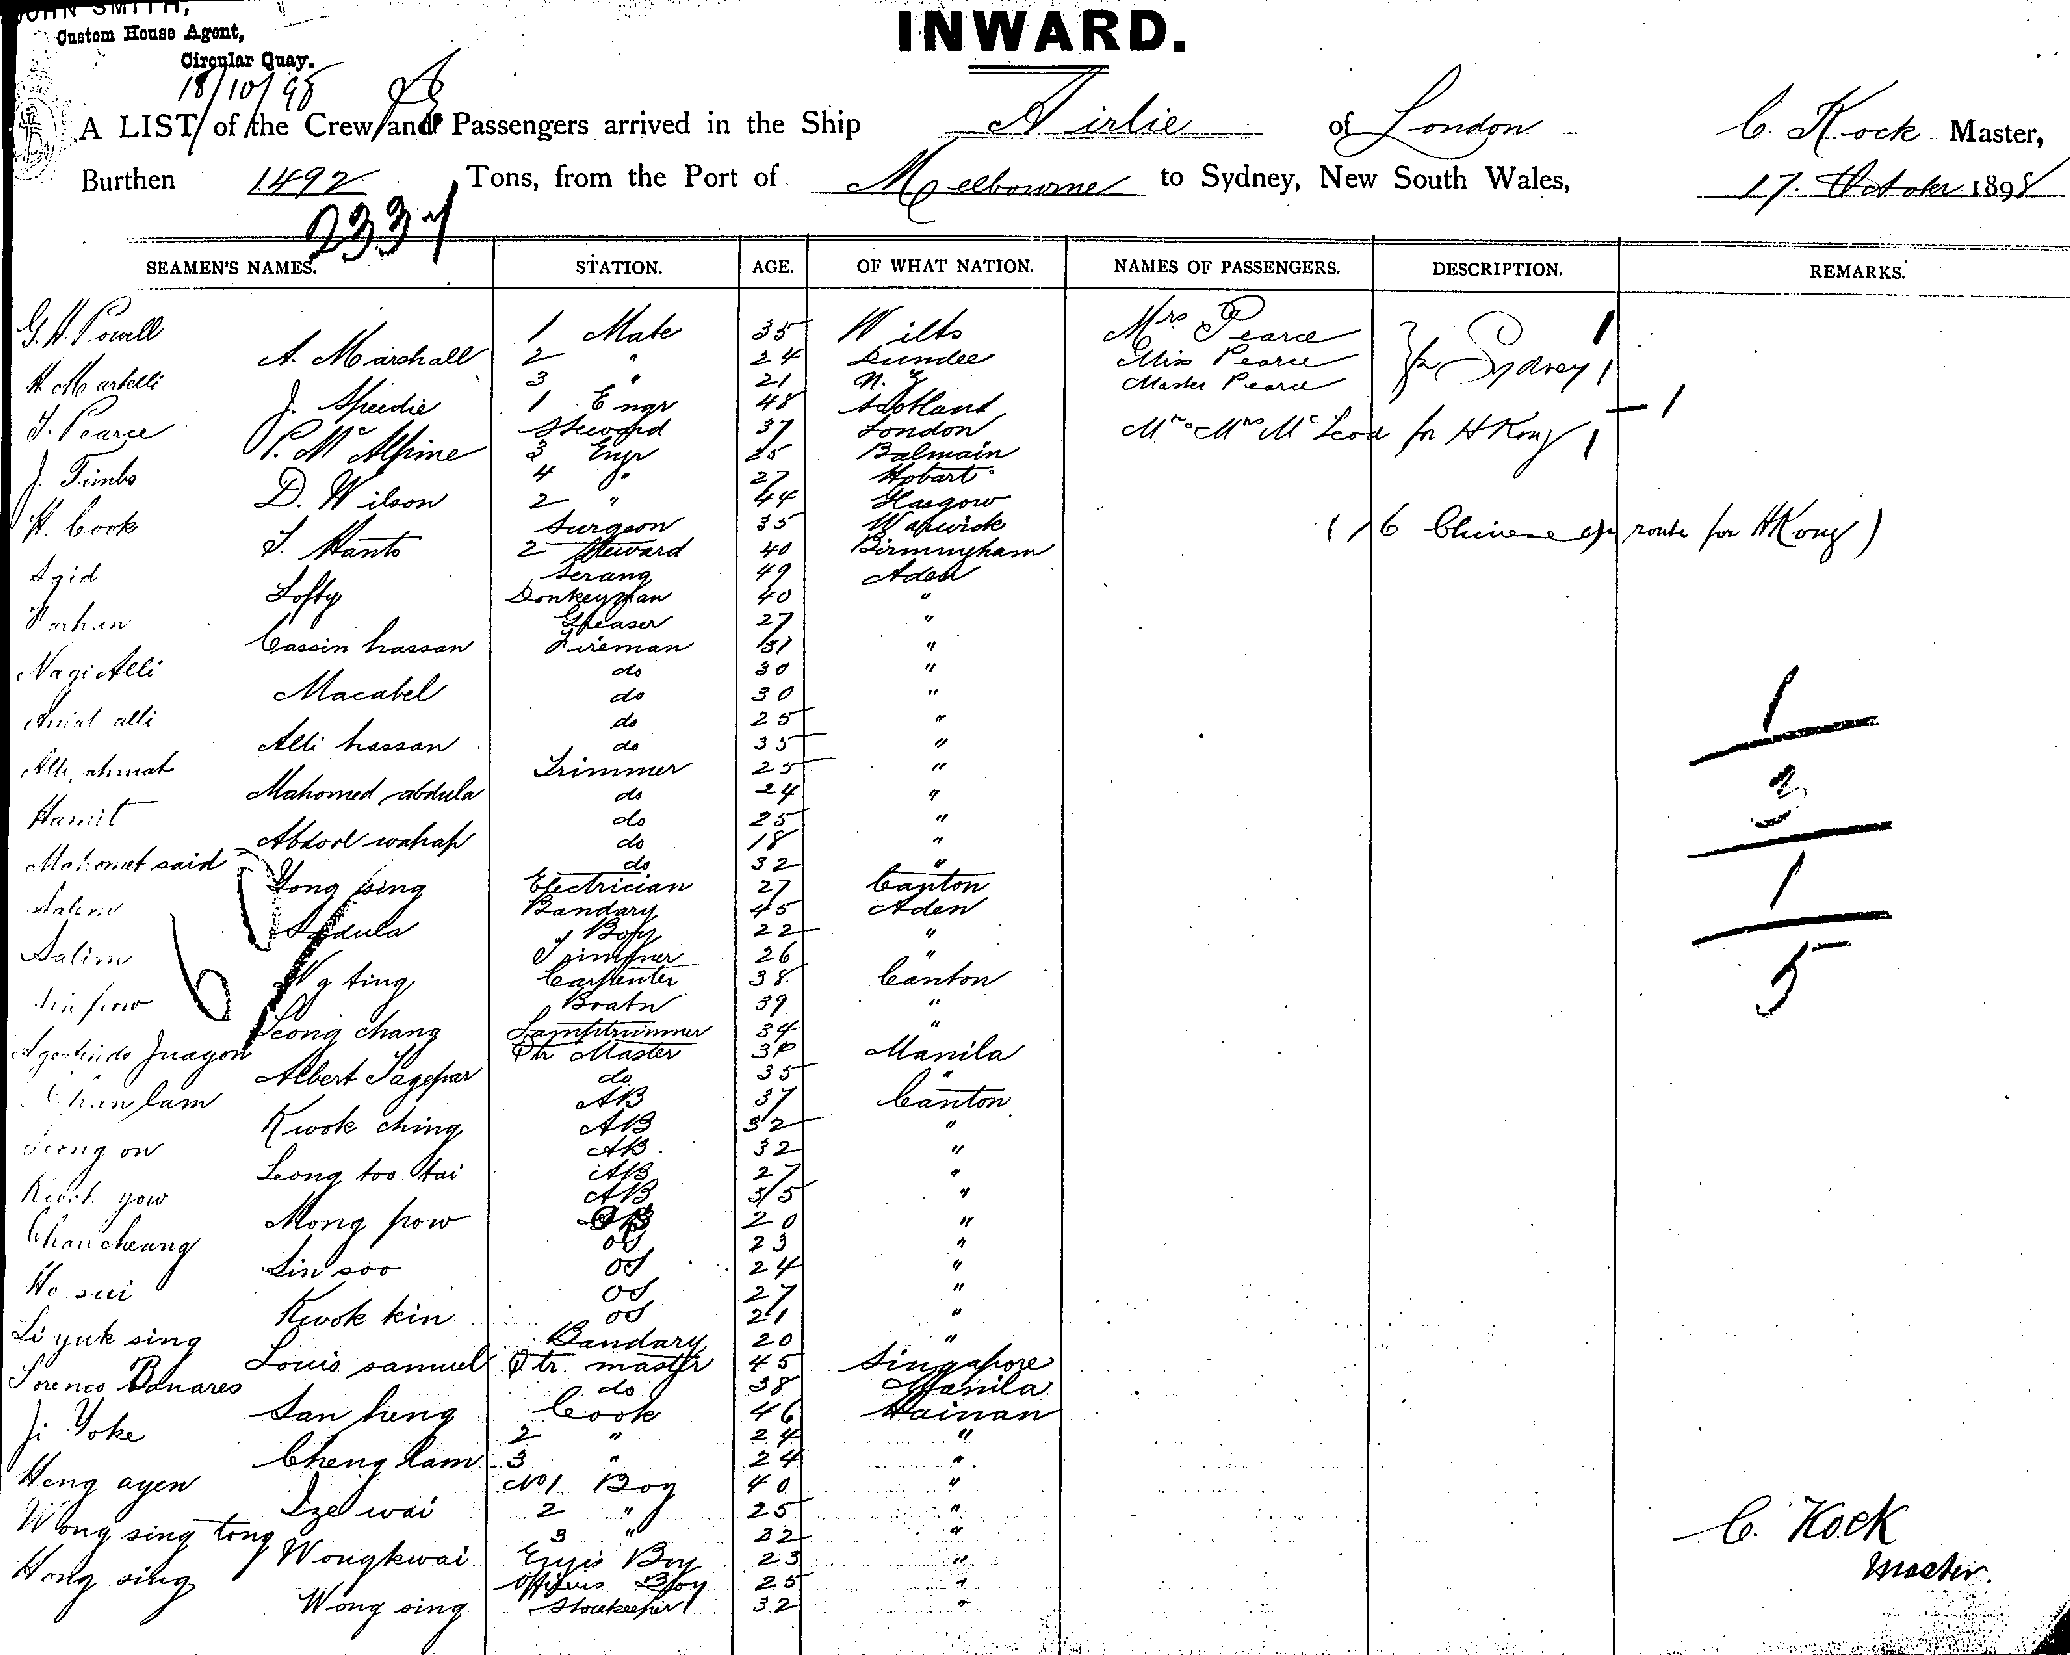 JOHN SMITH,
Custom House Agent,
Circular Quay.
18/10/98
INWARD.
A LIST of the Crew and Passengers arrived in the Ship Airlie of London C. Kock Master,
Burthen 1492 Tons, from the Port of Melbourne to Sydney, New South Wales, 17. October 1898
2337
SEAMEN'S NAMES. STATION. AGE. OF WHAT NATION. NAMES OF PASSENGERS. DESCRIPTION. REMARKS.
G. H. Powell 1 Mate 35 Wilts Mrs Pearce
A. Marshall 2 " 24 Dundee Miss Pearce for Sydney
H Martelli 3 " 21 N. Z Master Pearce
J. Speedie 1 Engr 48 Scotland
T. Pearce Steward 37 London Mr & Mrs McLeod for H Kong
P. McAlpine 3 Engr 25 Balmain
J. Timbs 4 " 27 Hobart
D. Wilson 2 " 44 Glasgow
H. Cook Surgeon 35 Warwick (16 Chinese en route for H Kong)
T. Hants 2 Steward 40 Birmingham
Serang 49 Aden
Lofty Donkeyman 40 "
Farhan Greaser 27 "
Cassin hassan Fireman 31 "
Nagi Alli do 30 "
Macabel do 30 "
alli do 25 "
Alli hassan do 35 "
Alli ahmat Trimmer 25 "
Mahomed abdula do 24 "
Hamit do 25 "
Abdool wahap do 18 "
Mahomet said do 32 "
Hong sing Electrician 27 Canton
Salem Bandary 45 Aden
Abdula " Boy 22 "
Salim Trimmer 26 "
Ng ting Carpenter 38 Canton
pow Boatn 39 "
Leong chang Lamptrimmer 34 "
Juagon Qtr Master Manila
Albert do 35 "
Chan lam AB 37 Canton
Kwok ching AB 32 "
Leong on AB. 32 "
Leong too tai AB 27 "
Kwok yow AB 35 "
Mong pow 20 "
Chan cheung OS 23 "
Lin soo OS 24 "
Ho sui OS 27 "
Kwok kin OS 21 "
Li yuk sing Bandary 20 "
Louis samuel Qtr. master 45 Singapore
Lorenco Banares do 38 Manila
San heng Cook 46 Hainan
Ji Yoke 2 " 24 "
Cheng lam 3 " 24 "
Heng ayen No 1 Boy 40 "
Sze wai 2 " 25 "
Wong sing tong 3 " 32 "
Wongkwai Engrs Boy 23 "
Hong sing Officers Boy 25 "
Wong sing Storekeeper 32 "
1
3
1
5
C. Kock
Master.